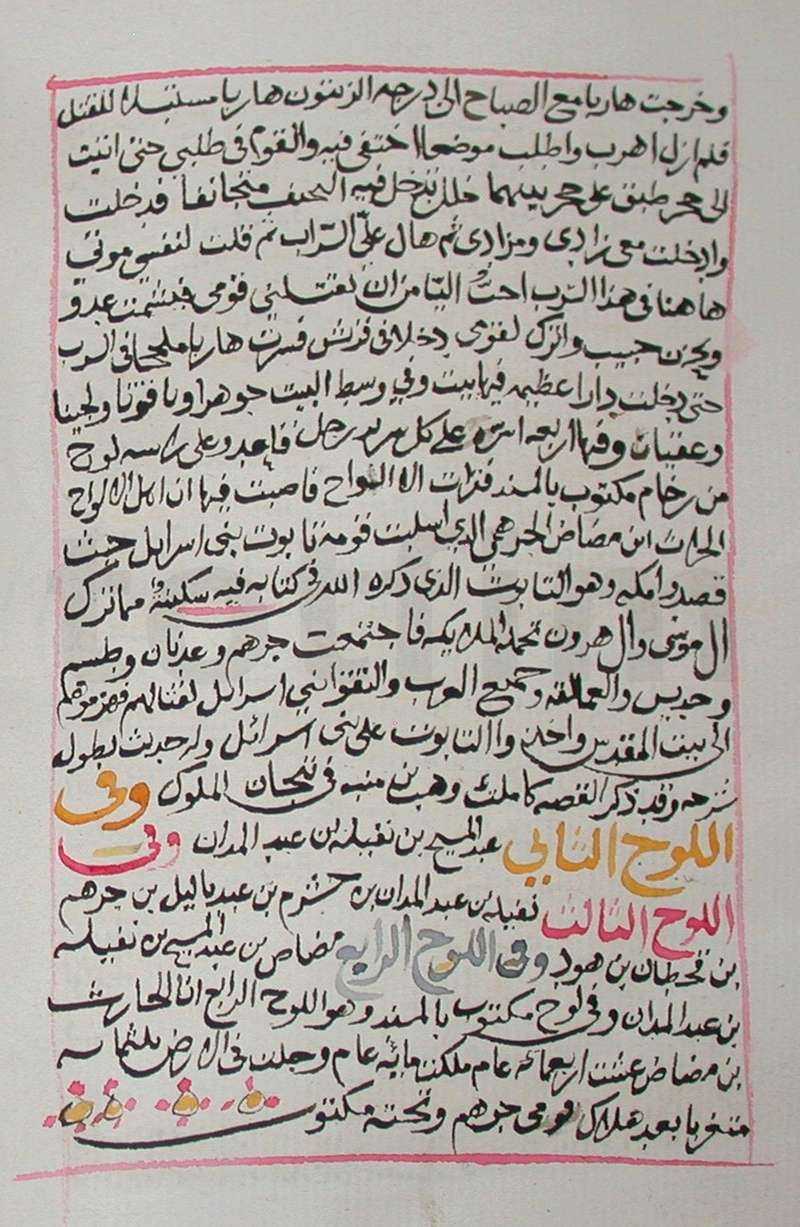 وخرجت هاربا مع الصباح الى درجه الزيتون هاربا للقتل
فلم ازل اهرب واطلب موضعا اختفى فيه والقوم فى طلبى حتى اتيت
الى حجر طبق على حجر بينهما خلل يدخل فيه النحيف متجانفا فدخلت
وادخلت معى زادى ومزادى ثم هال علىّ التراب ثم قلت لنفسى موتى
هاهنا فى هذا السرب احب الىّ من ان يقتلنى قومى فيشمت عدو
ويحزن حبيب واترك لقومى دخلا فى قريش فسرت هاربا فى السرب
حتى دخلت دارا عظيمه فيها بيت وفى وسط البيت جوهرا وياقوتا ولجينا
وعقيان وفيها اربعه اسره على كل سرير رجل قاعد وعلى راسه لوح
من رخام مكتوب بالمسند فقرات الالواح فاصبت فيها ان اهل الالواح
الحارث ابن مضاض الجرهمى الذى اسلبت قومه تابوت بنى اسرايل حيث
قصدوا مكه وهو التابوت الذى ذكره الله فى كتابه فيه سكينة مما ترك
ال موسى وال هرون تحمله الملايكه فاجتمعت جرهم وعدنان وطسم
وجديس والعمالقه وجميع العرب والتقوا بنى اسرايل لقتالهم فهزموهم
الى بيت المقدس واخذوا التابوت على بنى اسرائل وله حديث يطول
شرحه وقد ذكر القصه كاملت وهب بن منبه فى تيجان الملوك وفى
اللوح الثانى عبد المسيح بن نفيله بن عبد المدان وفى
اللوح الثالث نفيله بن عبد المدان بن خشرم بن عبد ياليل بن جرهم
بن قحطان بن هود وفى اللوح الرابع مضاض بن عبد المسيح بن نفيله
بن عبد المدان وفى لوح مكتوب بالمسند وهو اللوح الرابع انا الحارث
بن مضاض عشت اربعمائه عام ملكت مائه عام وجلت فى الارض ثلثمائه
متغربا بعد هلاك قومى جرهم وتحته مكتوب